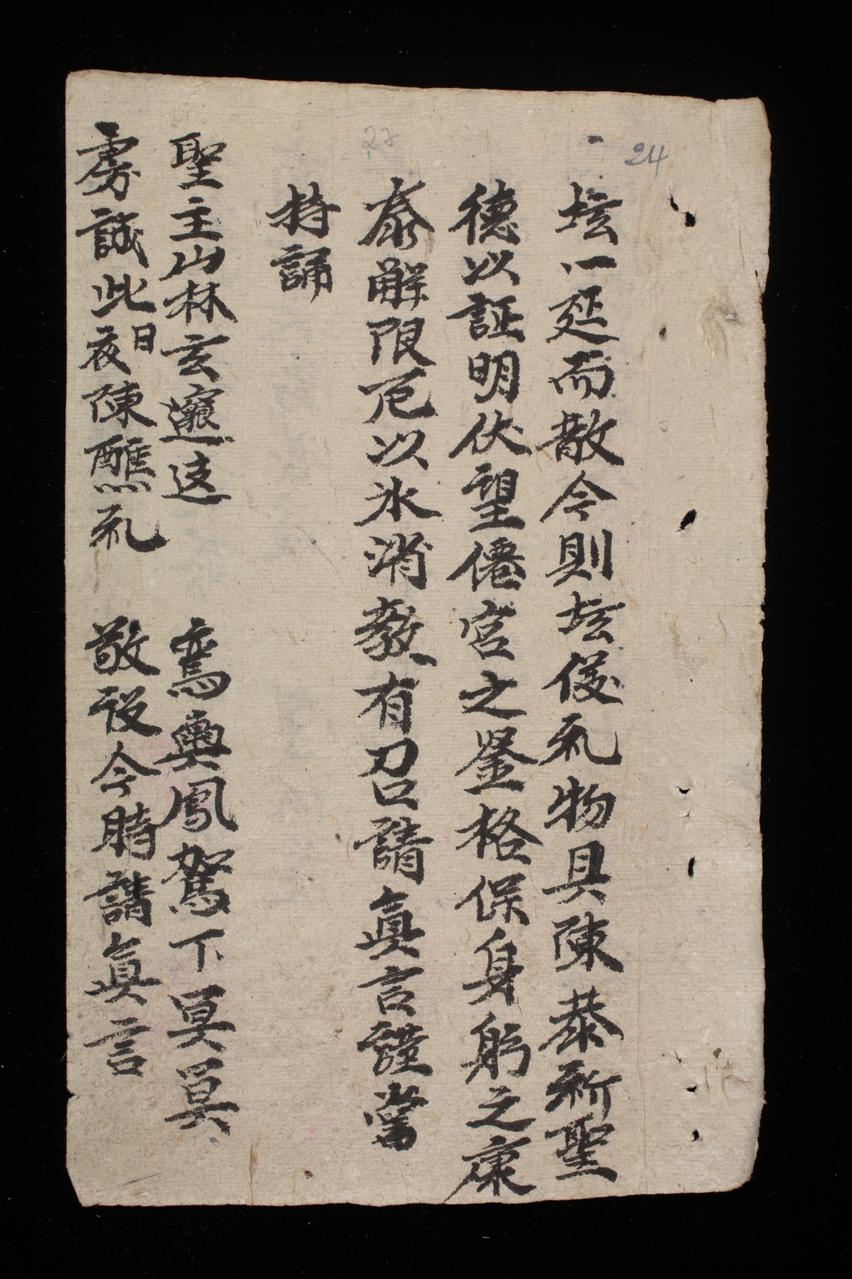 24
27
坛一延而散今則坛俻礼物具陳恭祈聖
德以証明伏望僊宮之鉴格保身躬之康
泰解限厄以氷消教有召請真言謹當
持誦
聖主山林玄邈逺 鸞輿鳳駕下冥冥
虔誠此日夜陳醮礼 敬設今時請真言